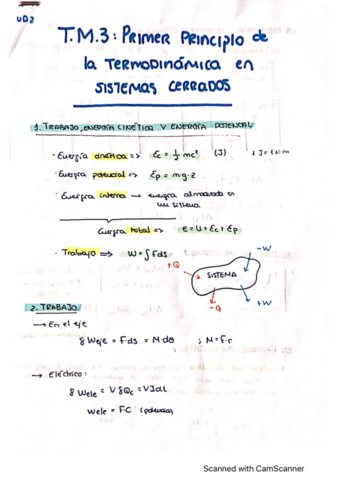 UD2
T.M.3: PRIMER PRINCIPIO de
la TERMODINÁMICA en
SISTEMAS CERRADOS
1. TRABAJO, ENERGÍA CINÉTICA Y ENERGÍA POTENCIAL
· Energía cinética => Ec = 1/2 mc² (J) 1J = 1N·m
· Energía potencial => Ep = m·g·z
· Energía interna → energía almacenada en
un sistema
Energía total => E = U + Ec + Ep
· Trabajo => W = ∫Fds
-W
+Q
SISTEMA
-Q
+W
2. TRABAJO
→ En el eje
δWeje = F·ds = M·dθ ; M = F·r
→ Eléctrico:
δWele = VδQc = VIdt
Wele = FC (potencia)
Scanned with CamScanner